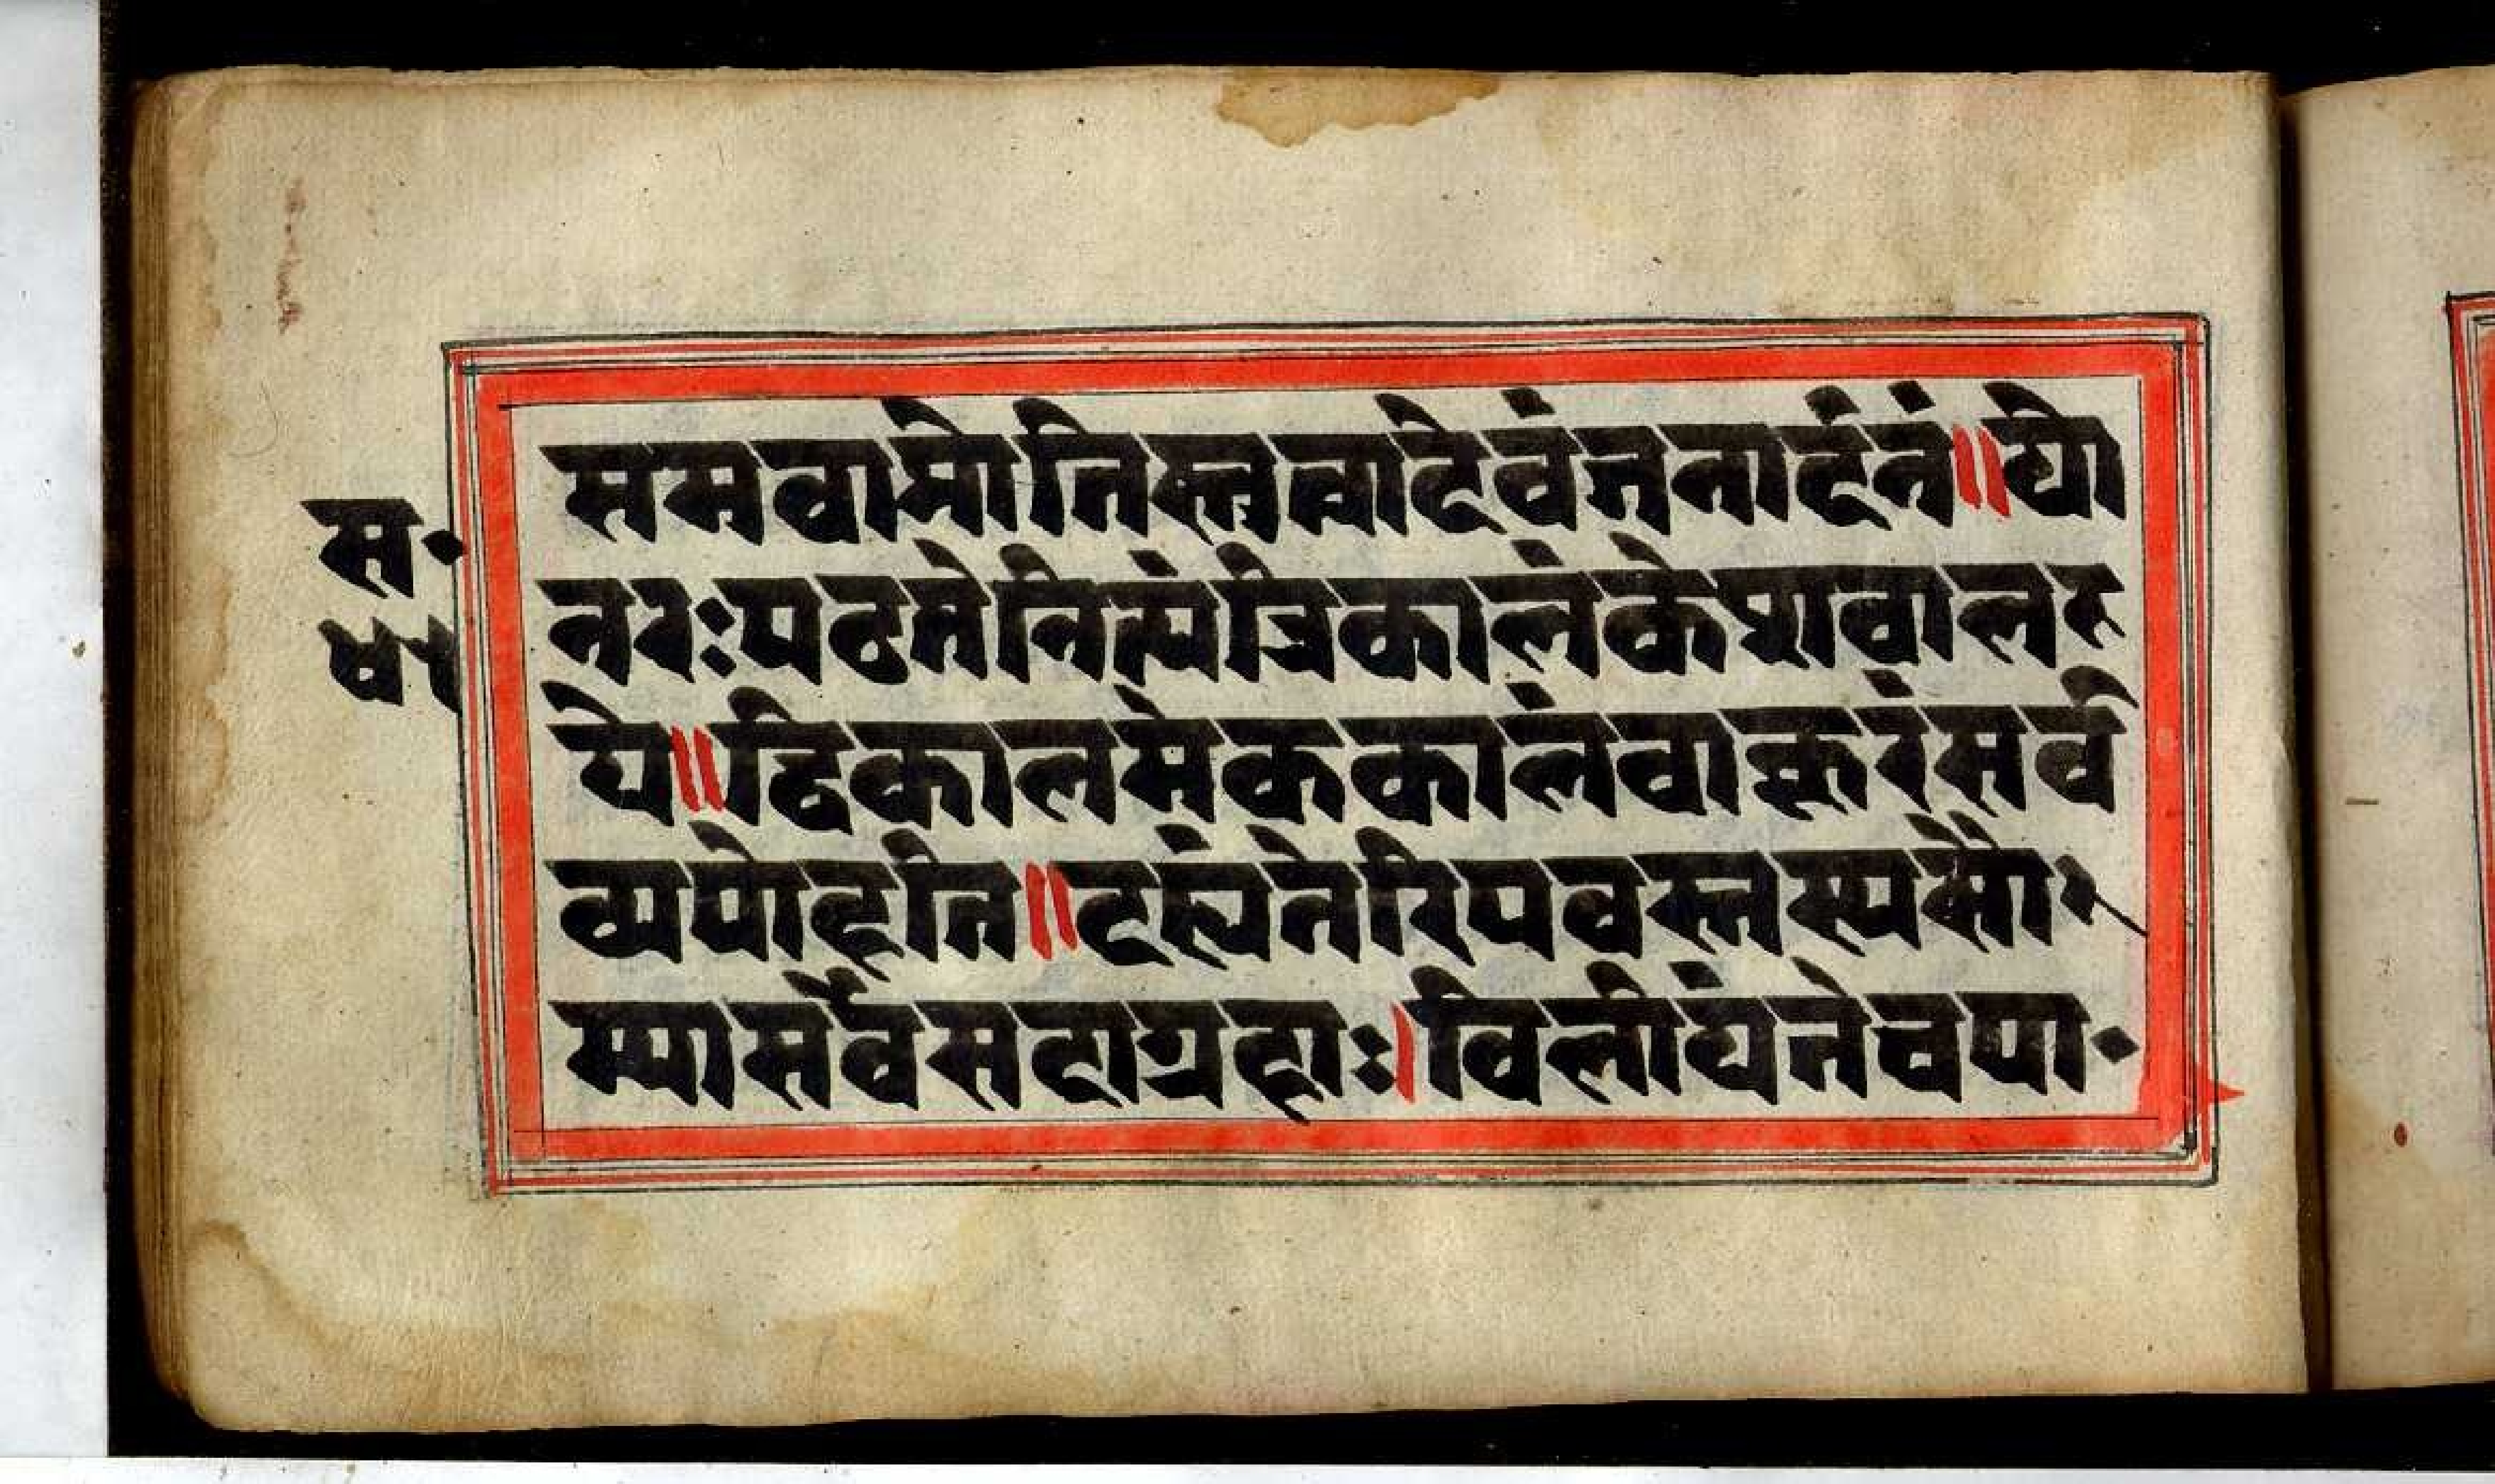 समवाप्नोतिस्तुत्वादेवंजनार्दनं॥यो
नरःपठतेनित्यंत्रिकालंकेशवालऱ
ये॥द्विकालमेककालंवाक्रूरंसर्वं
व्यपोहति॥दह्यंतेरिपवस्तस्यसौ॰
म्यासर्वैसदाग्रहाः।विलीयंतेचपा॰
स॰
४५